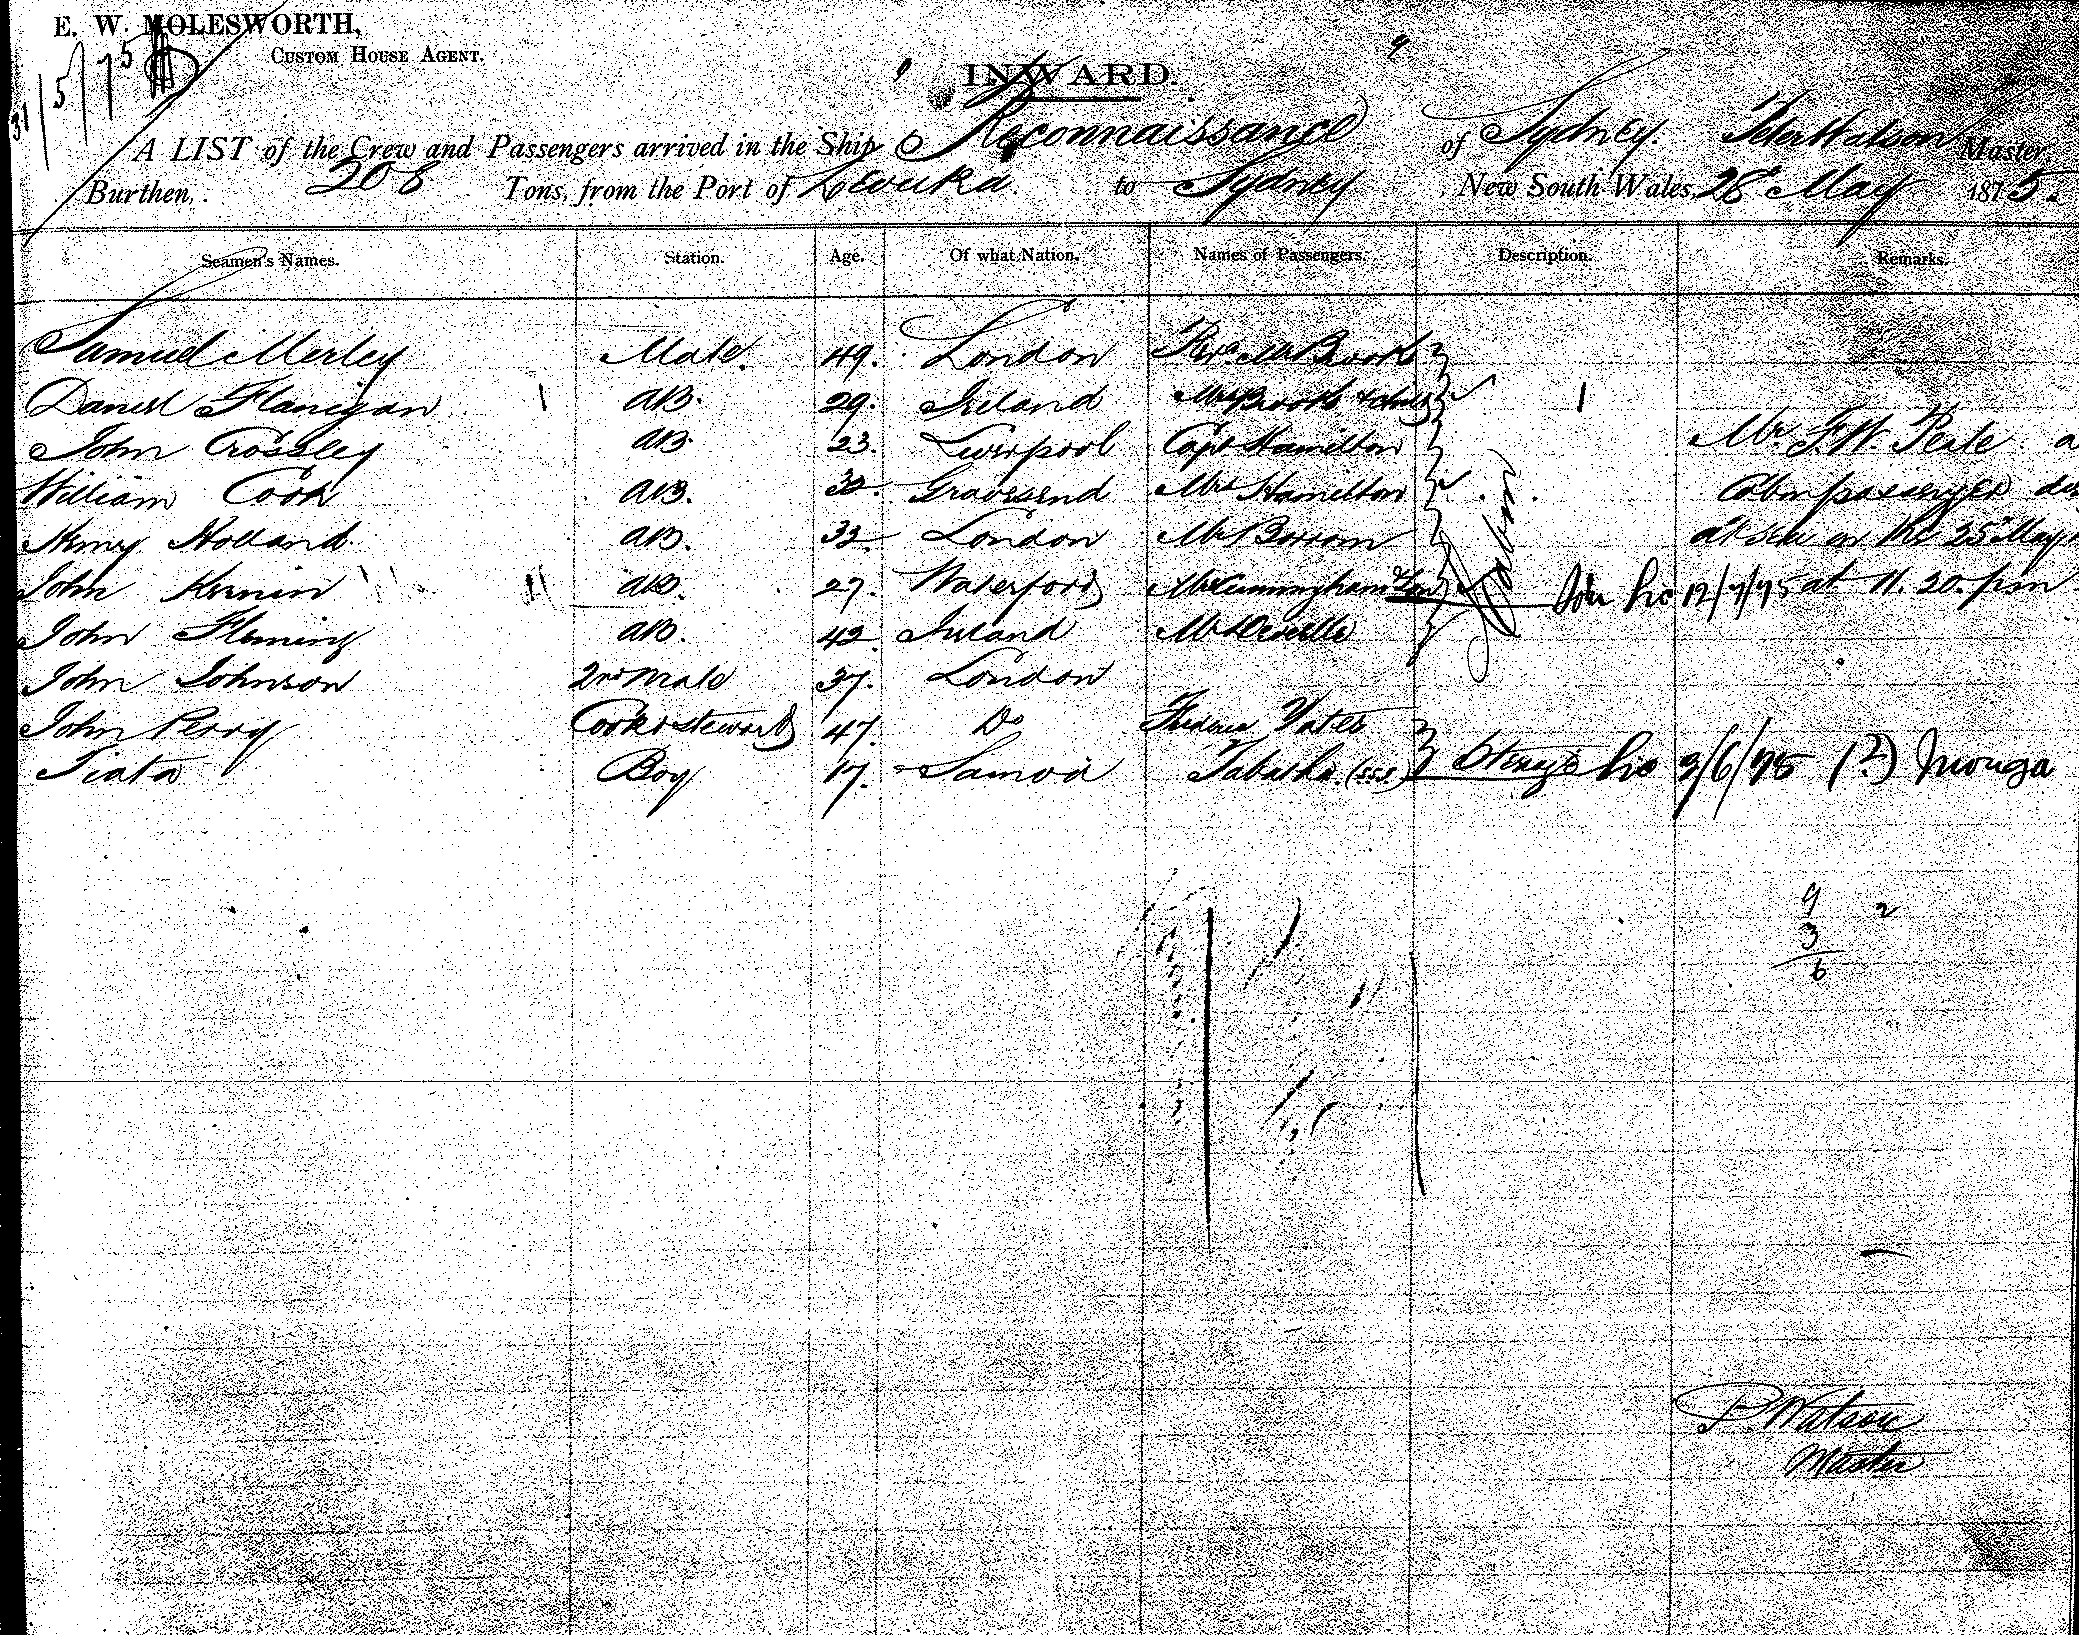 E. W. MOLESWORTH,
CUSTOM HOUSE AGENT.
31/5/75
INWARD.
A LIST of the Crew and Passengers arrived in the Ship Reconnaissance of Sydney. Peter Watson Master,
Burthen, 208 Tons, from the Port of Levuka to Sydney New South Wales, 28 May 1875.
Seamen's Names. Station. Age. Of what Nation. Names of Passengers. Description. Remarks.
Samuel Merley Mate. 49. London Revd Mr Brooks
Daniel Flanigan AB. 29. Ireland Mrs Brooks
John Crossley AB 23. Liverpool Capt Hamilton Mr F.W. Peale a
William Cook AB. 32. Gravesend Mrs Hamilton Cabin passenger
Henry Holland AB. 32. London Mr at sea on the 25th May
John Kernin AB. 27. Waterford Mr Cunningham 12/7/75 at 11.20. pm
John Fleming AB. 42. Ireland Mr
Cabin
John Johnson 2nd Mate 37. London
John Perry Cook & Steward 47. Do Yates
Tiata Boy 17. Samoa Tabatha (SSI) 2/6/75 (?)
9 2
3
6
P Watson
Master